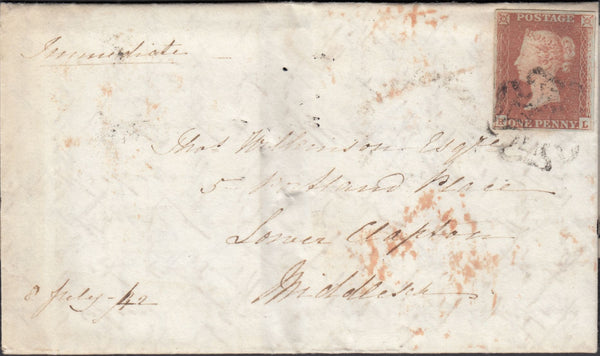 Immediate
POSTAGE
ONE PENNY
Thos Wilkinson Esqre
5 Portland Place
Lower Clapton
Middlesex
8 July - 42